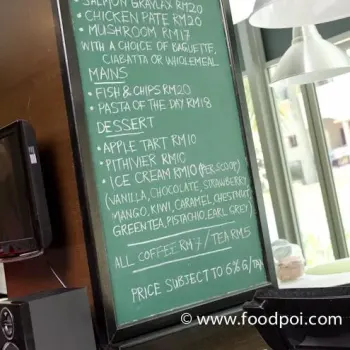 SALMON GRAVLAX RM20
• CHICKEN PATE RM20
• MUSHROOM RM17
WITH A CHOICE OF BAGUETTE,
CIABATTA OR WHOLEMEAL
MAINS
• FISH & CHIPS RM20
• PASTA OF THE DAY RM18
DESSERT
• APPLE TART RM10
• PITHIVIER RM10
• ICE CREAM RM10 (PER SCOOP)
(VANILLA, CHOCOLATE, STRAWBERRY,
MANGO, KIWI, CARAMEL, CHESTNUT,
GREEN TEA, PISTACHIO, EARL GREY)
ALL COFFEE RM7 / TEA RM5
PRICE SUBJECT TO 6% G/TAX
© www.foodpoi.com